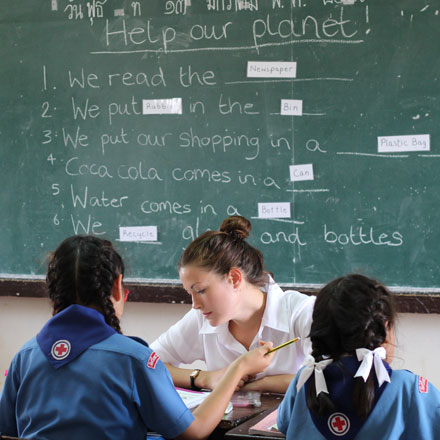 วัน พุธ ที่ ๑๓ พ.ศ.
Help our planet!
1. We read the Newspaper
2. We put Rubbish in the Bin
3 We put our shopping in a Plastic Bag
4 Coca cola comes in a Can
5 Water comes in a Bottle
6 We Recycle and bottles